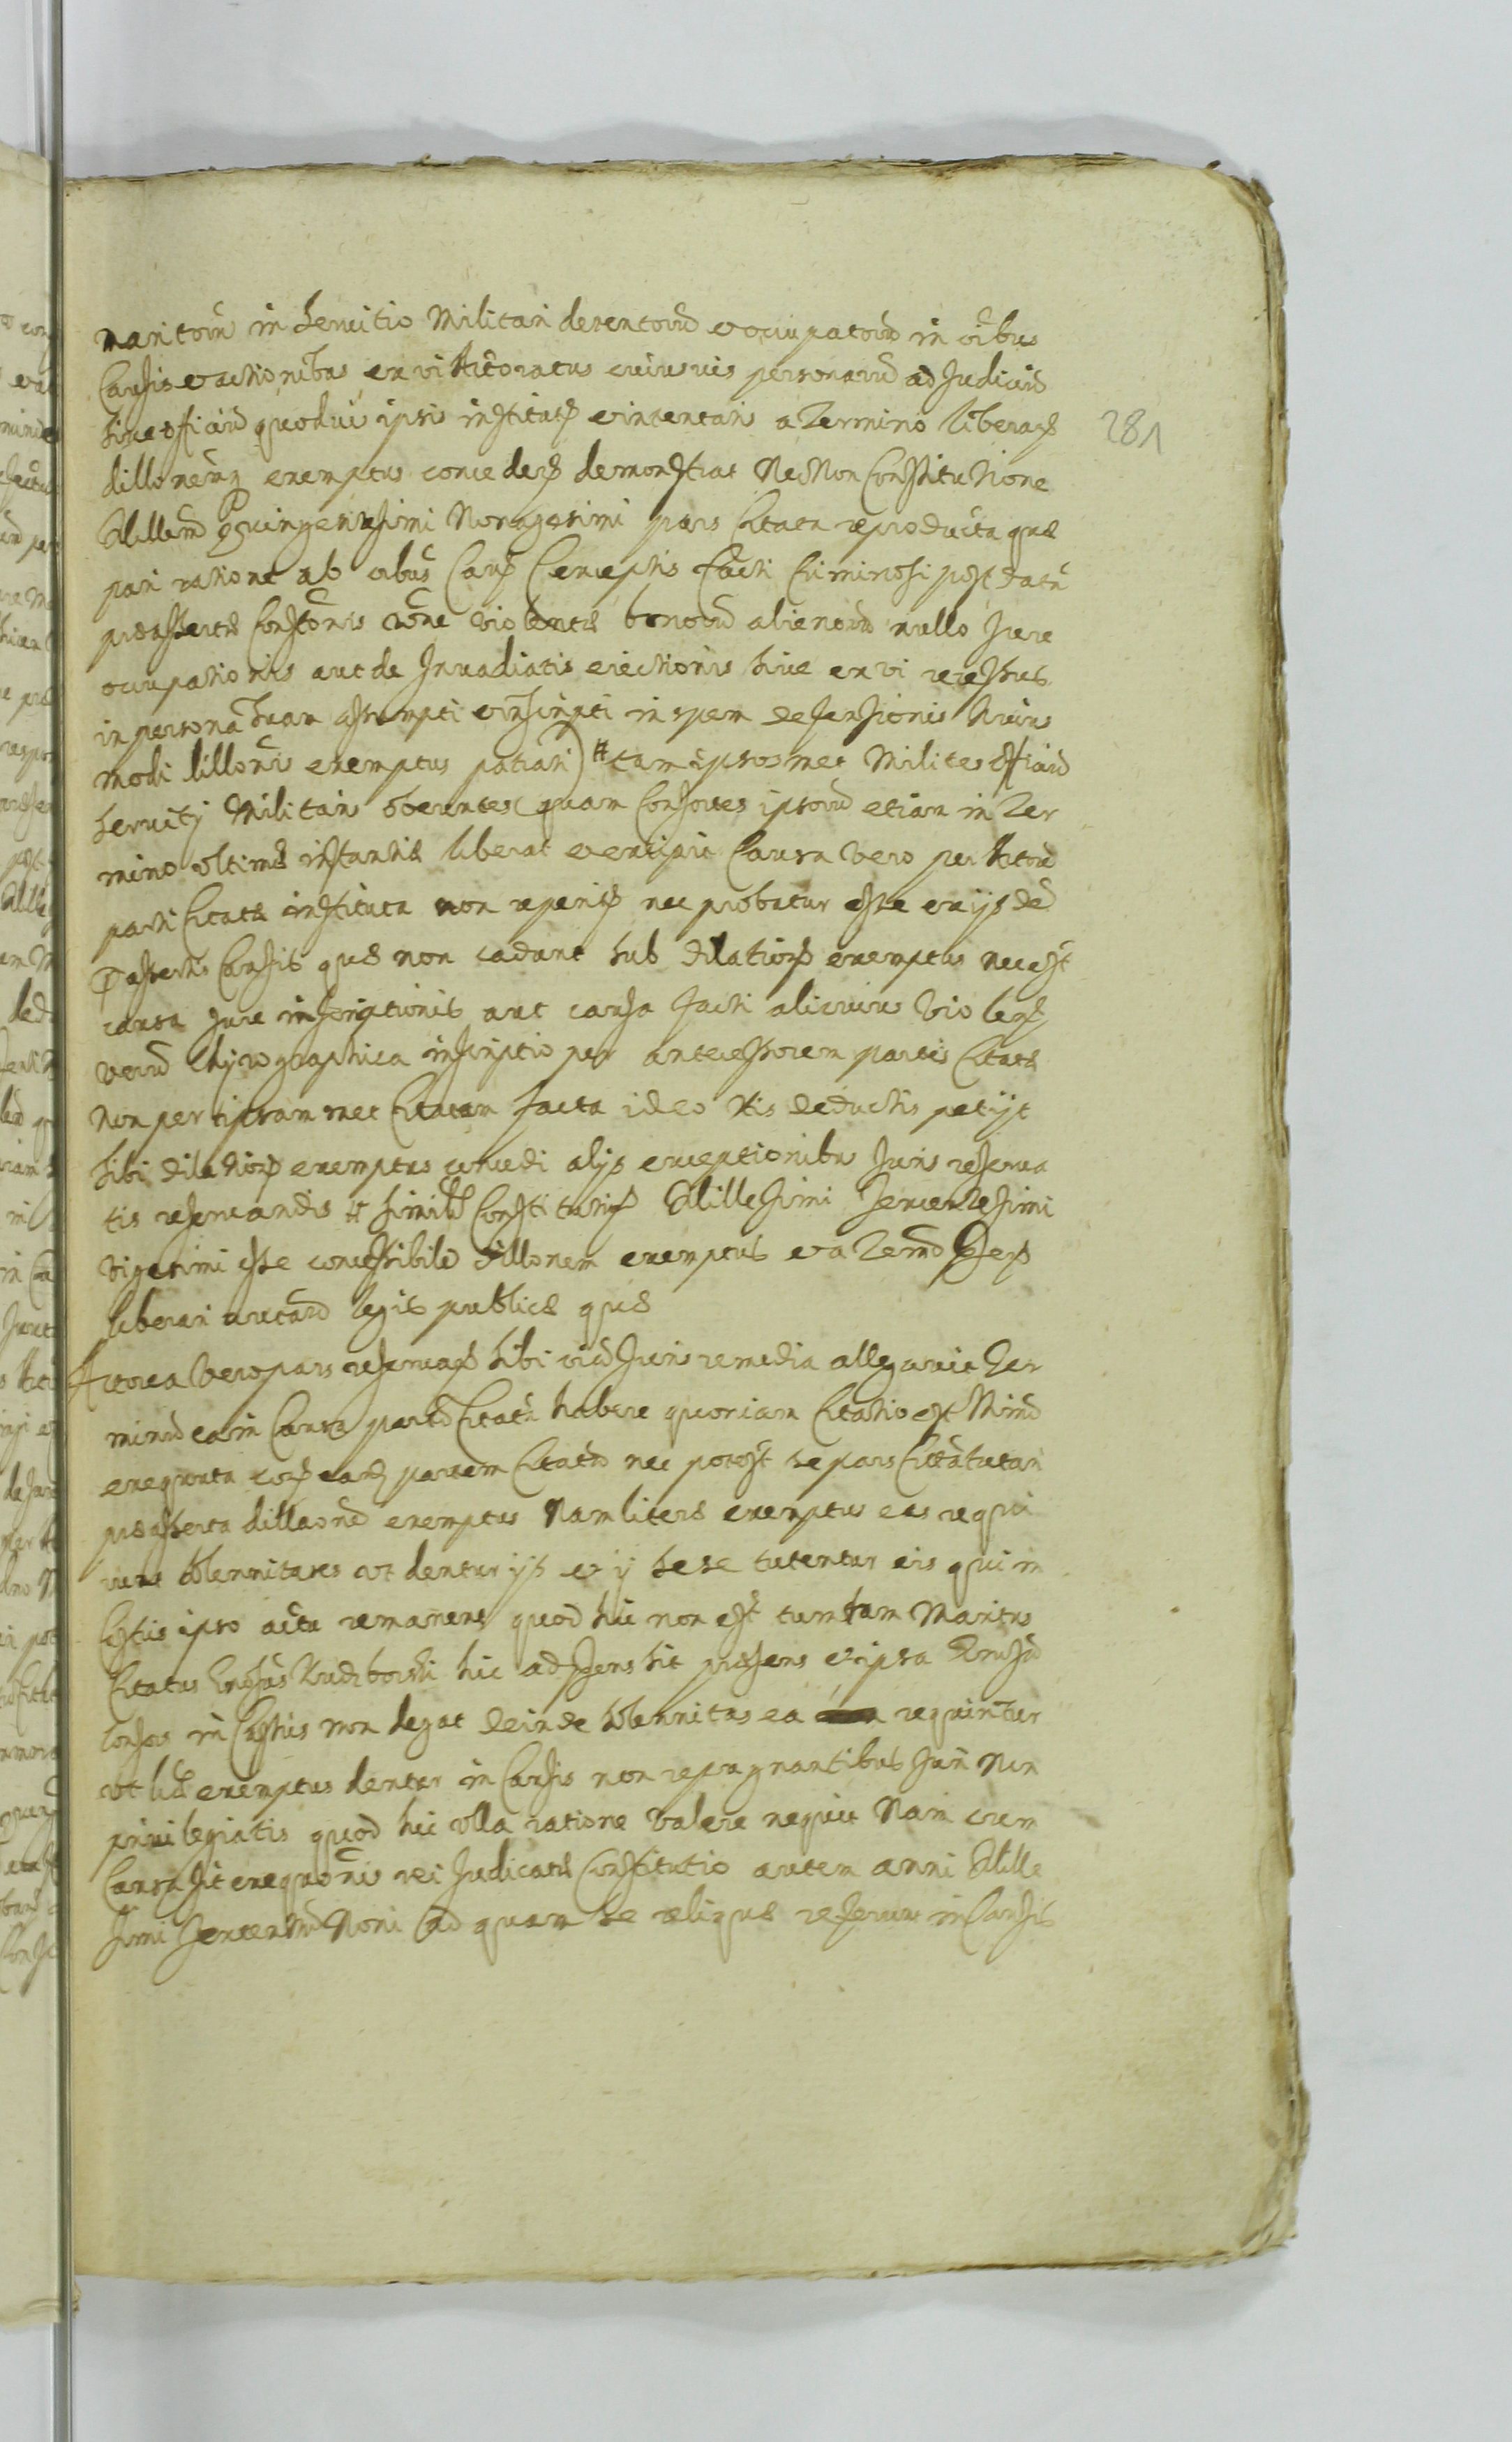 maritorū in servitio Militari detentorū et occupatorū in oībus
Causis et actionibus ex vi Actoratus cuiusvis personarū ad Judiciū
sive officiū quoduis ipsis institutis et intentatis a Termino liberat
dillonemq exemptus concedere demonstrat Nec Non Constitutione
Millemi Quingentesimi Nonagesimi pars Citata reproducta quæ
pari ratione ab oibus Causis Exceptis facti Criminosi post datū
præassertæ Constōnis rōne violentæ bonorū alienorū nullo Jure
occupationis aut de Invadiatis eiectionis sive ex vi recessus
in personā suam assumpti et inscripti in spem defensionis huius
modi dillōnis exemptus patrati) tam ipsosmet Milites officiū
servitij Militaris obeuntes quam Consortes ipsorū etiam in Ter
mino ultimæ instantiæ liberat et excipit Causa vero per Actorū
parti Citatæ instituta non reperit nec probatur esse ex ijsdē
præassertis Causis quæ non cadunt sub dilationē exemptus nec est
causa Jure inscriptionis aut causa facti alicuius violenti
verū Chyrographica inscriptio per antecessorem partis Citatæ
Non per ipsammet Citatam facta ideo His deductis petijt
sibi dilationē exemptus concedi alijs exceptionibus Juris reserva
tis reservandis et similē Constitutionē Millesimi Sexcentesimi
Vigesimi esse concessibile dillonem exemptus et a Termō
liberari iuxta legis publicæ quæ
Actorea Vero pars reservatis sibi Juris remedia allegavit Ter
minū ea in Causa partē Citatā habere quoniam Citatio est
exequuta partem Citatā nec potest se pars Citata tutari
præasserta dillaone exemptus Nam literæ exemptus eas requi
runt solennitates ut dentur ijs et ij sese tutentur eis qui in
Castris ipso actu remanent quod hic non est tum tam Maritus
Citatus hic adsens sit præsens et ipsa
Consors in Castris non degat deinde solennitas ea requiritur
ut exemptus dentur in Causis non repugnantibus Juri Nen
privilegiatis quod hic ulla ratione valere nequit Nam cum
Causa sit exequōnis rei Judicatæ Constitutio autem anni Mille
simi Sexcentmi Noni ad quam se reliquæ referunt in Causis
281